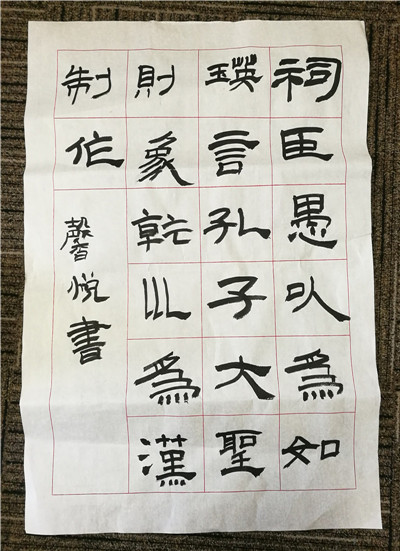 祠臣愚以為如
瑛言孔子大聖
則象乾坤為漢
制作
馨悦書